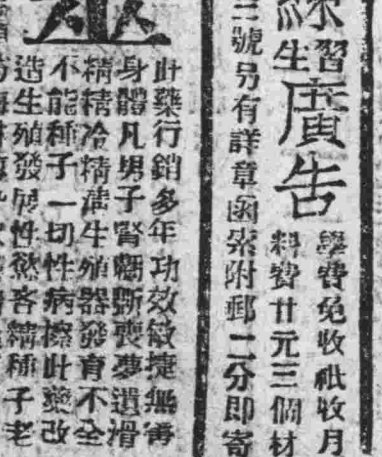 練習
生
廣告
學費免收祇收月
料費廿元三個材
三號另有詳章函索附郵二分即寄
此藥行銷多年功效敏捷無害
身體凡男子腎虧斲喪夢遺滑
精精冷精薄生殖器發育不全
不能種子一切性病擦此藥改
造生殖發展性慾吝精種子老